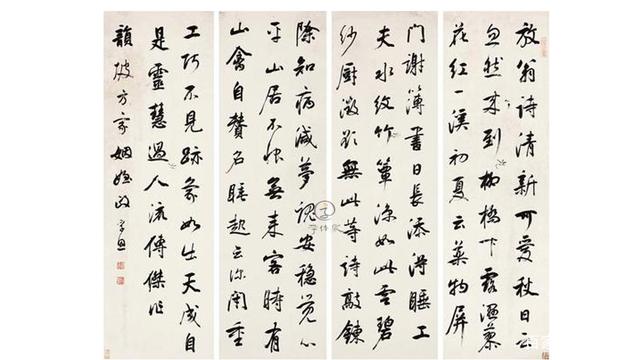 放翁詩清新可愛秋日云
忽然來到柳橋下露濕蓼
花紅一溪初夏云藥物屏
除知病減夢魂安穩覺心
平山居不恨無來客時有
山禽自贊名睡起云深閉重
門謝簿書日長添得睡工
夫水紋竹簟涼如此雲碧
紗厨無此等詩敲鍊
工巧不見跡象如出天成自
是靈慧過人流傳傑作
韻陂方家姻政